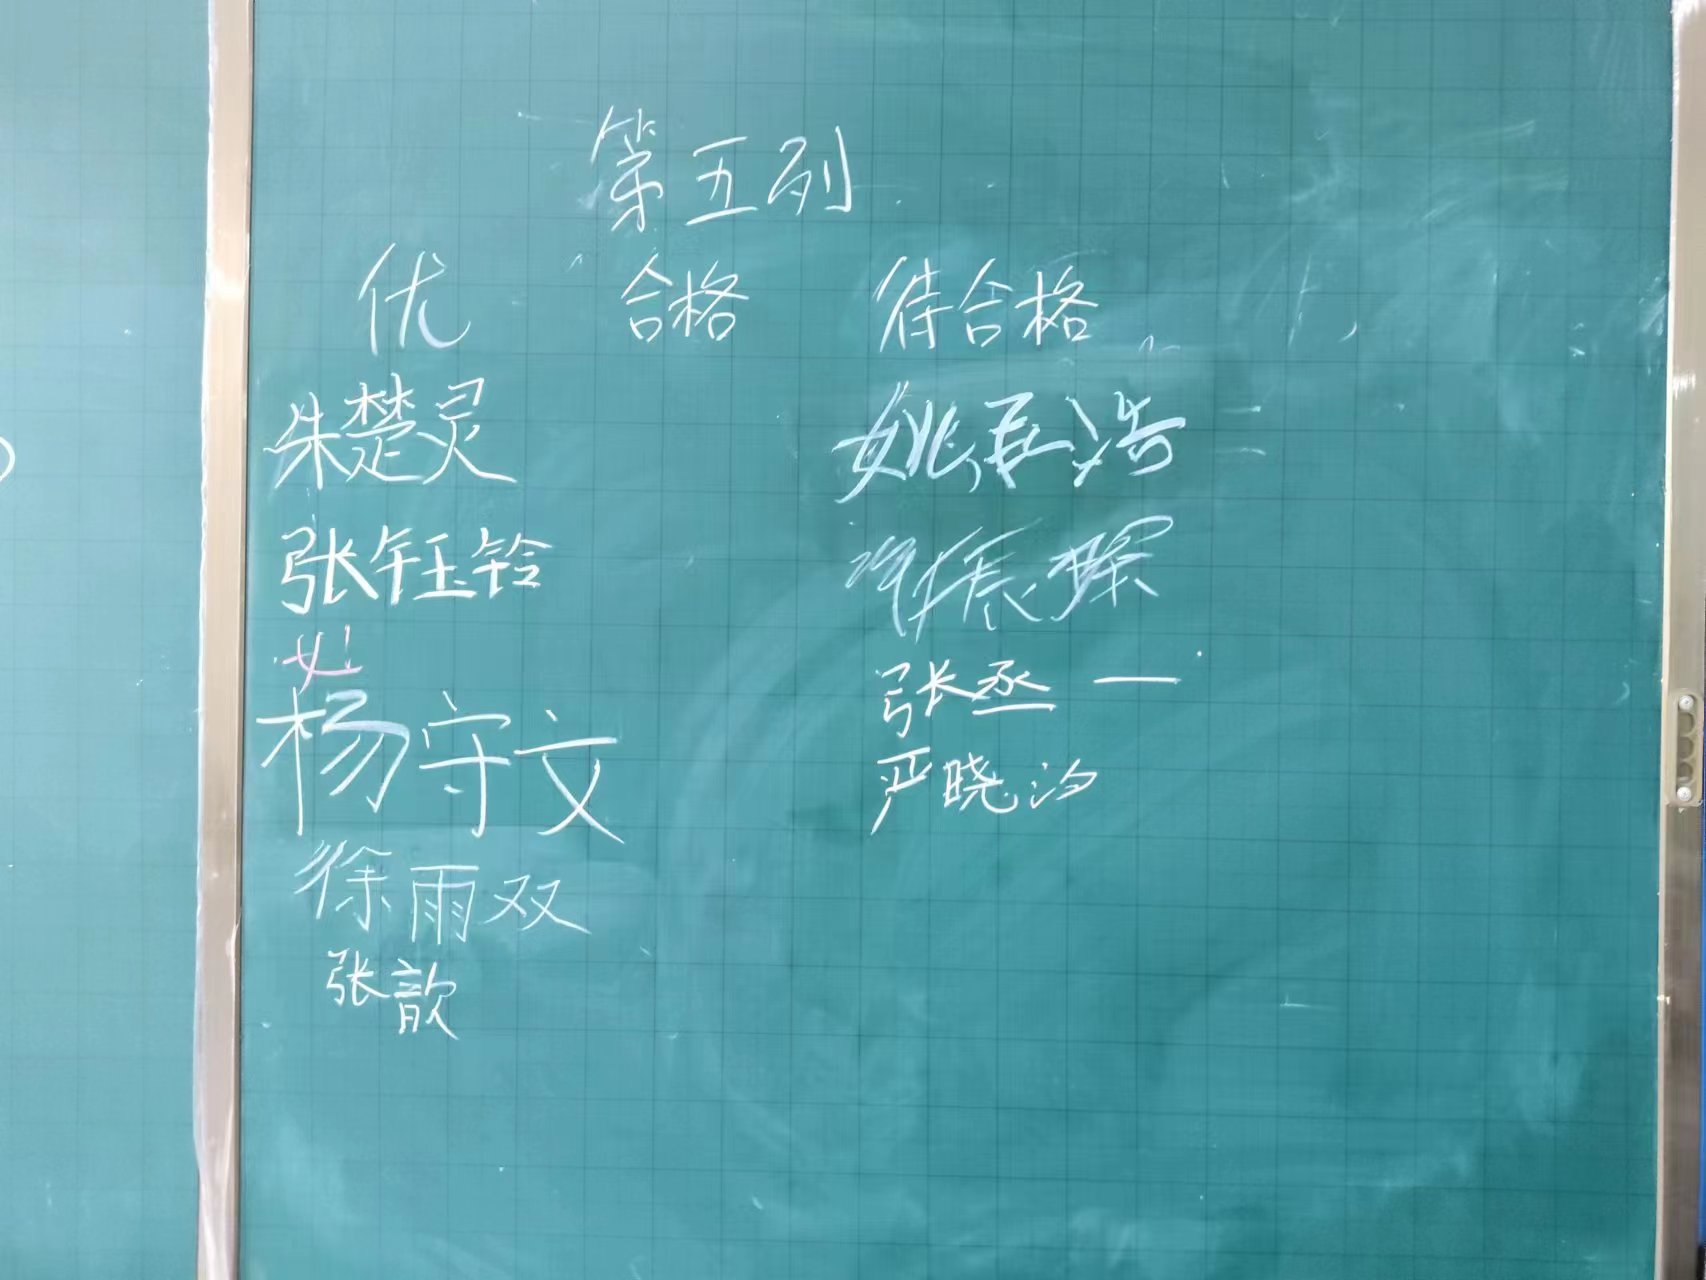 第五列
优 合格 待合格
朱楚灵
张钰铃
杨守文
徐雨双
张歆
姚辰浩
许振琛
张丞一
严晓汐